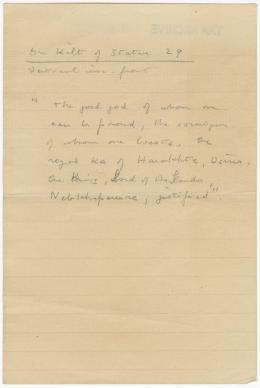 On Kilt of Statue 29
Internal ins. front
"The good god of whom one
can be proud, the sovereign
of whom one boasts, the
royal ka of Harakhte, Osiris,
the King, Lord of the Lands,
Nebkheperure, justified".